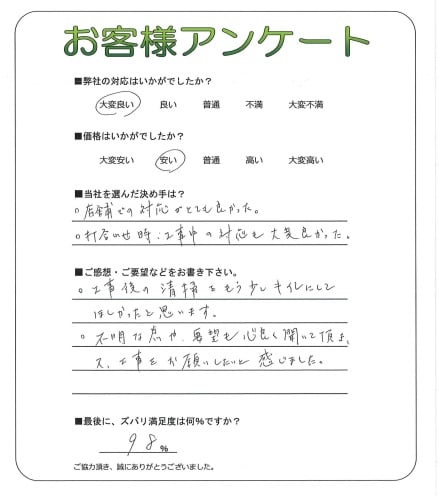 お客様アンケート
■弊社の対応はいかがでしたか？
大変良い 良い 普通 不満 大変不満
■価格はいかがでしたか？
大変安い 安い 普通 高い 大変高い
■当社を選んだ決め手は？
○店舗での対応がとても良かった。
○打合わせ時、工事中の対応も大変良かった。
■ご感想・ご要望などをお書き下さい。
○工事後の清掃をもう少しキレイにして
ほしかったと思います。
○不明な点や、要望も心良く聞いて頂き、
又、工事をお願いしたいと感じました。
■最後に、ズバリ満足度は何％ですか？
98％
ご協力頂き、誠にありがとうございました。